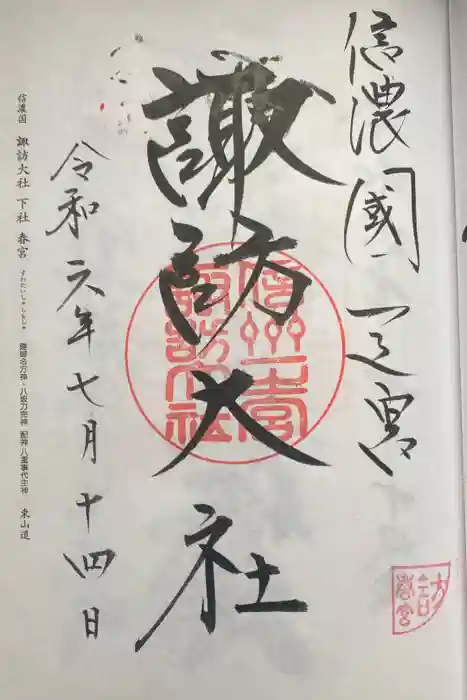 信濃國一之宮
諏訪大社
信州一宮
諏訪大社
令和六年七月十四日
信濃国 諏訪大社 下社 春宮 すわたいしゃしもしゃ 建御名方神・八坂刀売神 配神 八重事代主神 東山道